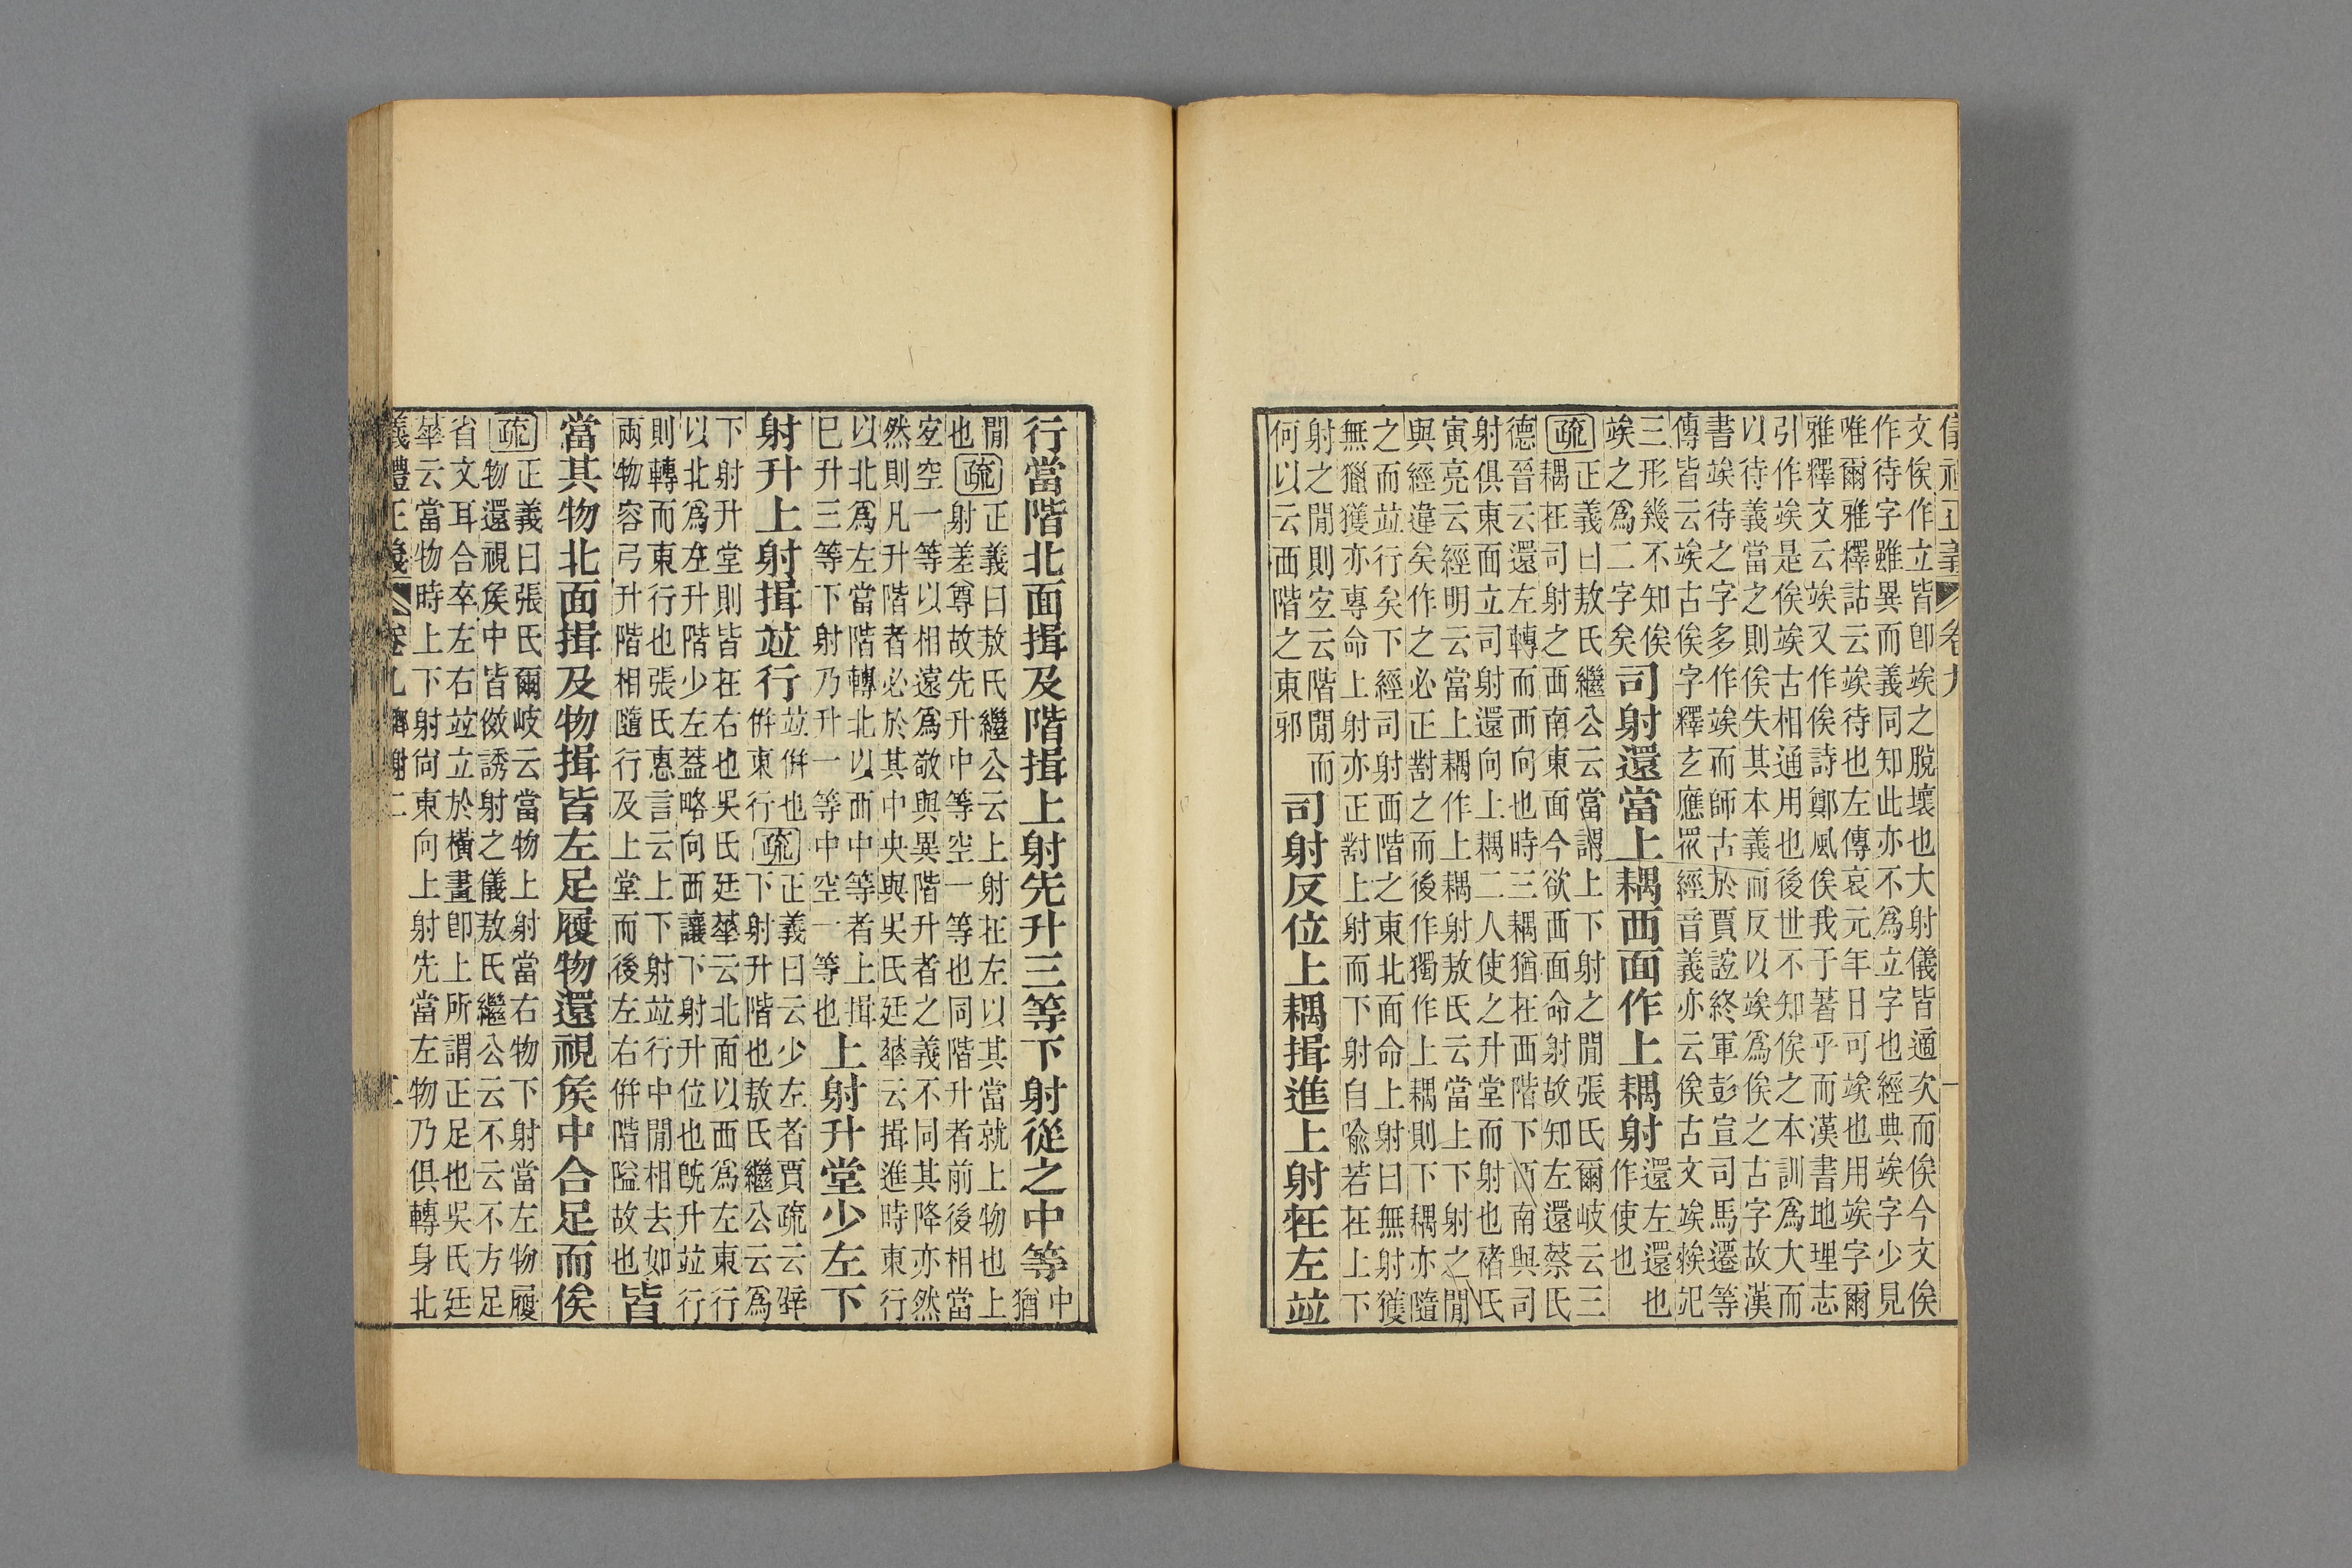 儀禮正義 卷九
文俟作立皆卽竢之脫壞也大射儀皆適次而俟今文俟
作待字雖異而義同知此亦不爲立字也經典竢字少見
唯爾雅釋詁云竢待也左傳哀元年日可竢也用竢字爾
雅釋文云竢又作俟詩鄭風俟我于著乎而漢書地理志
引作竢是俟竢古相通用也後世不知俟之本訓爲大而
以待義當之則俟失其本義而反以竢爲俟之古字故漢
書竢待之字多作竢而師古於賈誼終軍彭宣司馬遷等
傳皆云竢古俟字釋玄應眾經音義亦云俟古文竢
三形幾不知俟
竢之爲二字矣
司射還當上耦西面作上耦射
還左還也
作使也
疏 正義曰敖氏繼公云當謂上下射之閒張氏爾岐云三
耦在司射之西南東面今欲西面命射故知左還蔡氏
德晉云還左轉而西向也時三耦猶在西階下西南與司
射俱東面立司射還向上耦二人使之升堂而射也褚氏
寅亮云經明云當上耦作上耦射敖氏云當上下射之閒
與經違矣作之必正對之而後作獨作上耦則下耦亦隨
之而竝行矣下經司射西階之東北面命上射曰無射獲
無獵獲亦專命上射亦正對上射而下射自喻若在上下
射之閒則宜云階閒而
何以云西階之東邪
司射反位上耦揖進上射在左竝
行當階北面揖及階揖上射先升三等下射從之中等
中
猶
閒
也
疏 正義曰敖氏繼公云上射在左以其當就上物也上
射差尊故先升中等空一等也同階升者前後相當
宜空一等以相遠爲敬與異階升者之義不同其降亦然
然則凡升階者必於其中央與吳氏廷華云揖進時東行
以北爲左當階轉北以西中等者上揖
已升三等下射乃升一等中空一等也
上射升堂少左下
射升上射揖竝行
竝併也
併東行
疏 正義曰云少左者賈疏云辟
下射升階也敖氏繼公云爲
下射升堂則皆在右也吳氏廷華云北面以西爲左東行
以北爲左升階少左蓋略向西讓下射升位也旣升竝行
則轉而東行也張氏惠言云上下射竝行中閒相去如
兩物容弓升階相隨行及上堂而後左右併階隘故也
皆
當其物北面揖及物揖皆左足履物還視侯中合足而俟
疏 正義曰張氏爾岐云當物上射當右物下射當左物履
物還視侯中皆傚誘射之儀敖氏繼公云不云不方足
省文耳合卒左右竝立於橫畫卽上所謂正足也吳氏廷
華云當物時上下射尙東向上射先當左物乃俱轉身北
義禮正義 卷九 鄉射二